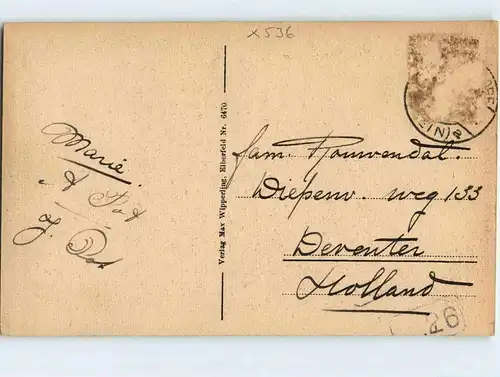 x 536
Marie.
Verlag Max Wipperling, Elberfeld Nr. 6470
fam. Rouwendal.
Diepenv. weg 133
Deventer
Holland
26